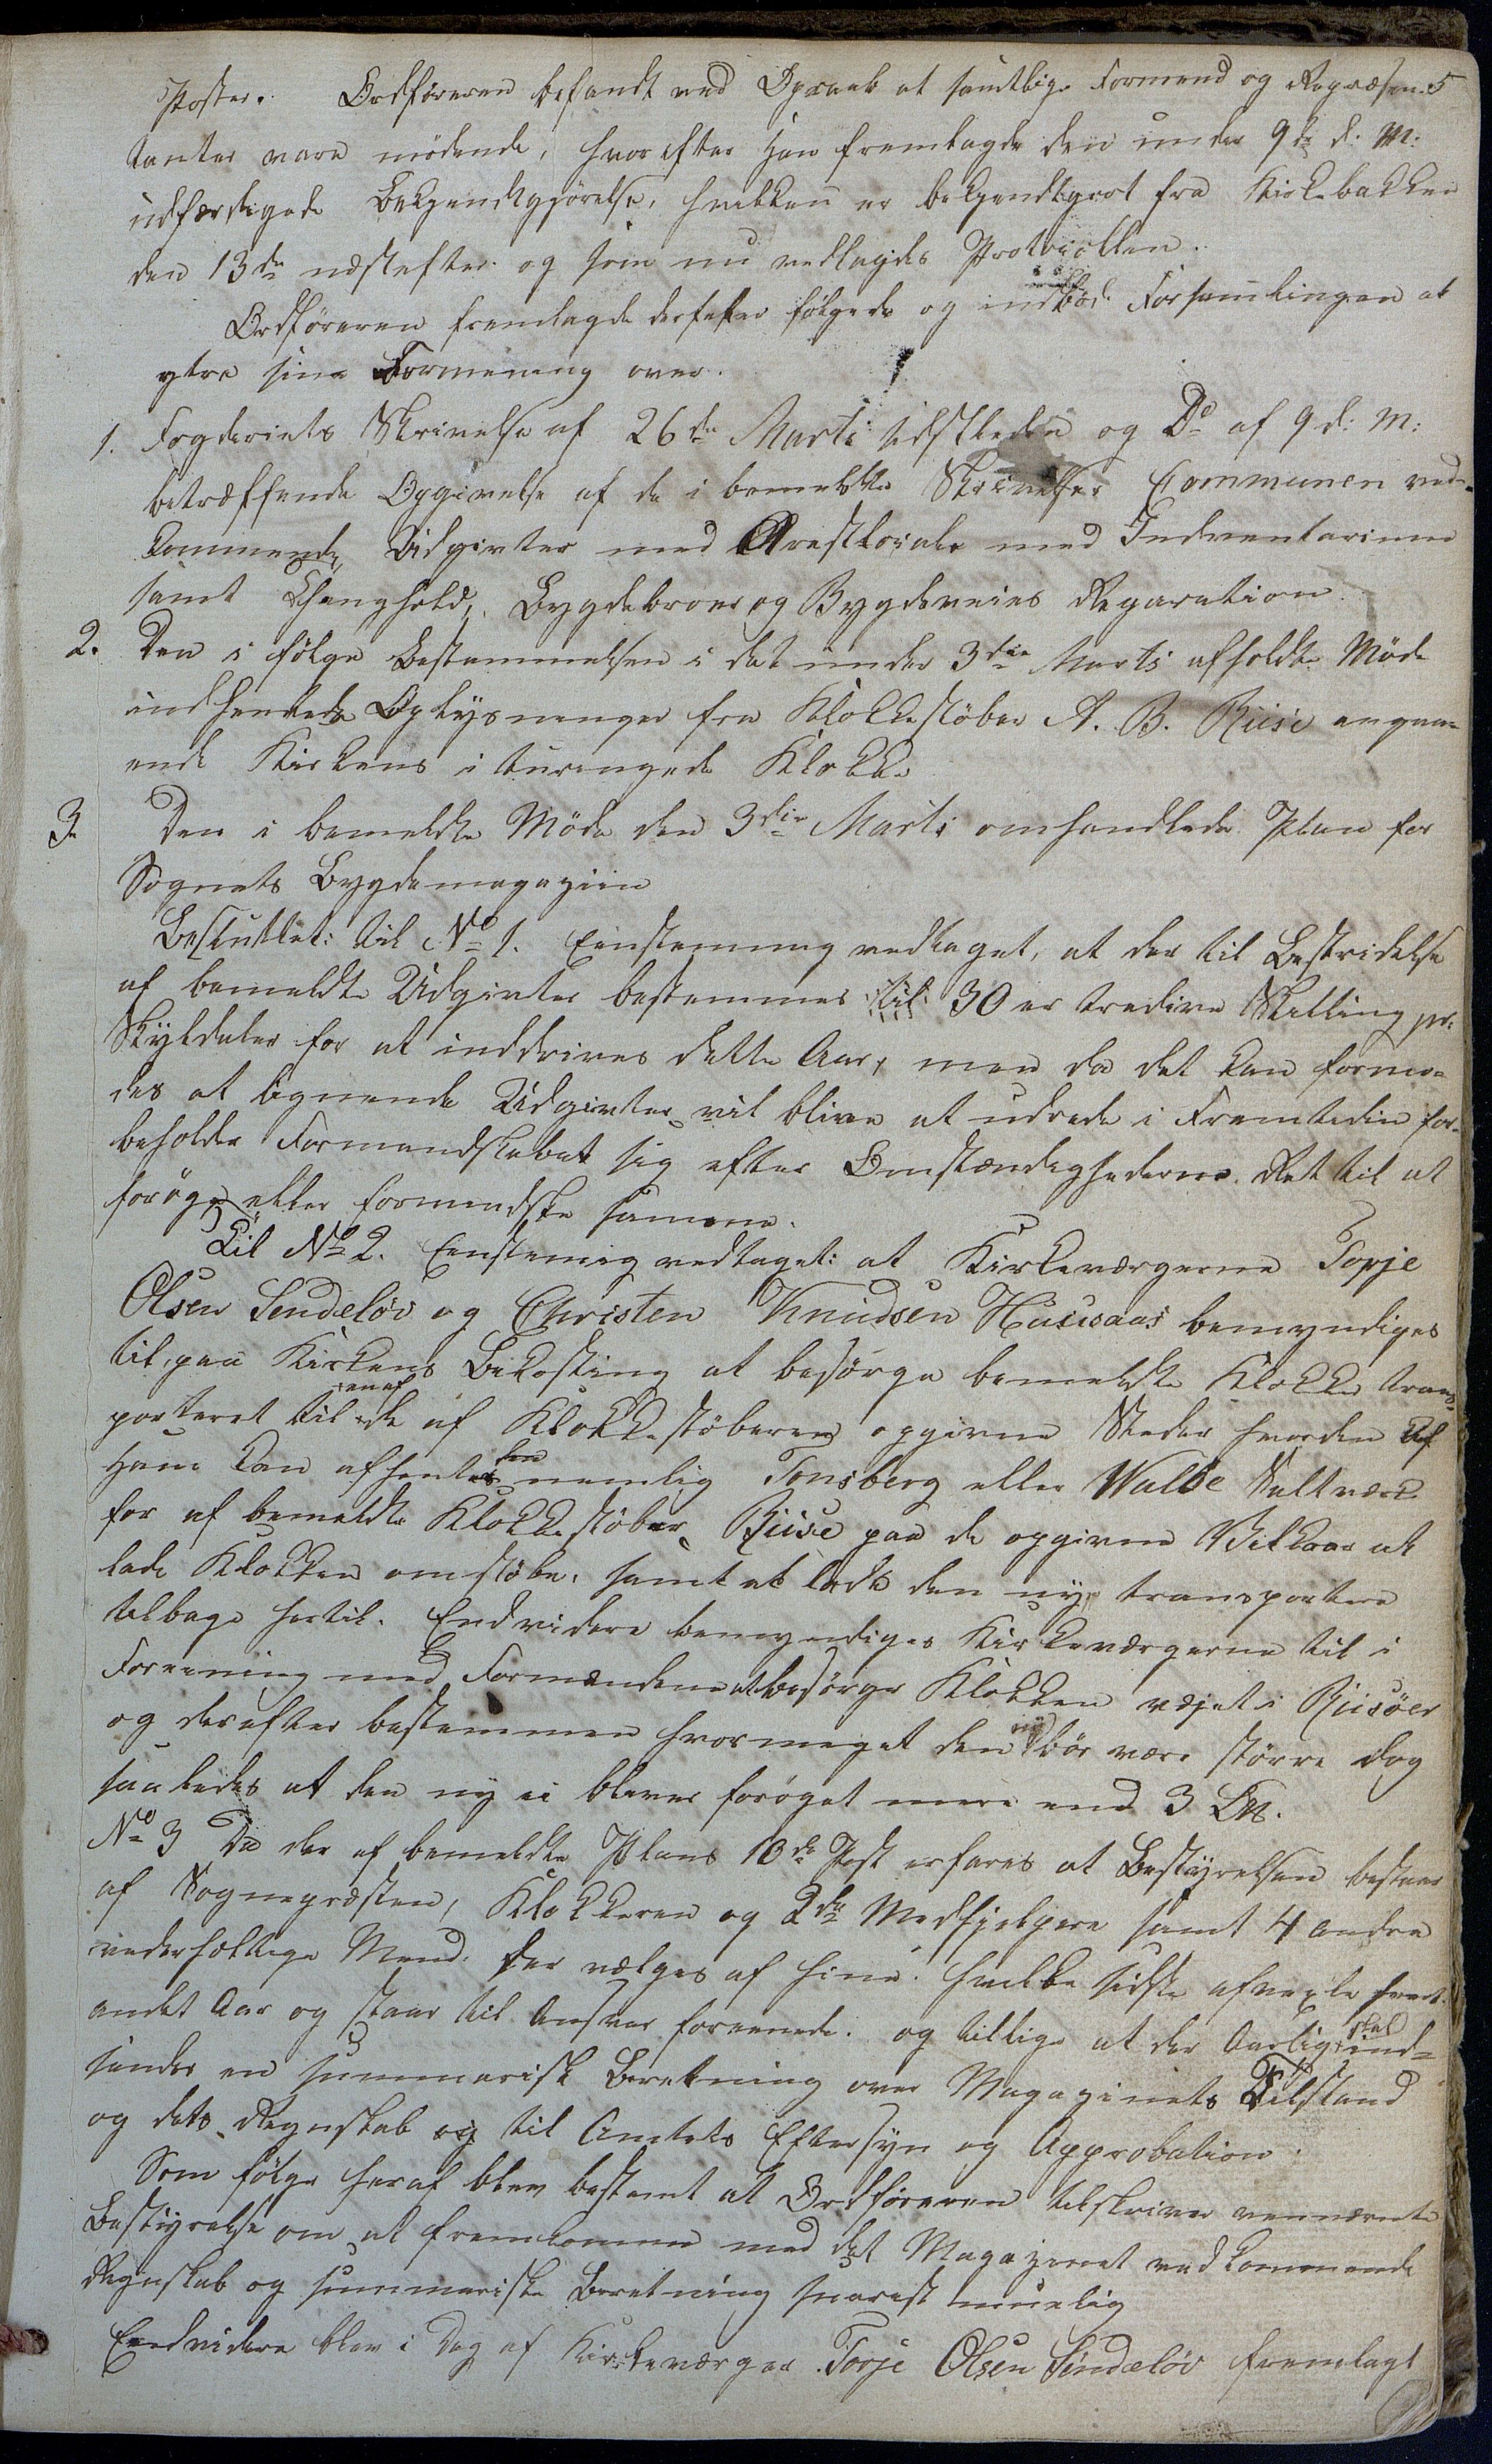 Poster. Ordføreren befandt ved Opraab at samtlige Formænd og Repræsen- 5
tanter vare mødende, hvorefter Han fremlagde den under 9de d: M:
udfærdigede Bekjendtgjørelse, hvilken er bekjendtgjort fra Kirkebakken
den 13de næstefter og som nu vedlagdes Protocollen.
Ordføreren fremlagde derefter følgende og indbød Forsamlingen at
ytre sine Formening over.
1. Fogderiets Skrivelse af 26de Marts sidstleden og Do af 9 d: M:
betræffende Opgivelse af de i bemeldte Skrivelser Communen ved-
kommende Udgivter med Arestlocale med Indventarium
samt Thinghold, Bygdebroer og Bygdeveies Reparation.
2. Den i følge Bestemmelsen i det under 3die Marts afholdte Møde
indhentede Oplysninger fra Klokkestøber A. B. Riise angaa-
ende Kirkens ituringede Klokke
3. Den i bemeldte Møde den 3die Marts omhandlede Plan for
Sognets Bygdemagazin
Besluttet: til No 1. Eenstemmig vedtaget, at der til Bestridelse
af bemeldte Udgivter bestemmes til 30 er tredive Skilling pr:
Skyldaler for at inddrives dette Aar, men da det kan formo-
des at lignende Udgivter vil blive at udrede i Fremtiden for-
beholder Formandskabet sig efter Omstændighederne Ret til at
forøge eller formindske samme.
Til No 2. Eenstemig vedtaget: at Kirkeværgerne Terje
Olsen Sendeløv og Christen Knudsen Huusaas bemyndiges
til, paa Kirkens Bekosting at besørge bemeldte Klokke trans-
porteret til en af de af Klokkestøberen opgivne Steder hvor den af
Ham kan afhentes nemlig Tonsberg eller Walöe Saltværk
for af bemeldte Klokkestøber Riise paa de opgivne Vilkaar at
lade Klokken omstøbe, samt at lade den nye transportere
tilbage hertil. Endvidere bemyndiges Kirkeværgerne til i
Foreening med Formændene at besørge Klokken vejet i Riisøer
og derefter bestemmen hvormeget den ny bør være større dog
saaledes at den ny ei bliver forøget mere end 3 L℔.
No 3 Da der af bemeldte Plans 10de Post erfares at Bestyrelsen bestaar
af Sognepræsten, Klokkeren og 2de Medhjelpere samt 4 andre
vederhæftige Mænd. der vælges af hine. hvilke sidste afvexle hvert
andet Aar og staar til Ansvar foreenede. og tillige at der Aarlig skal ind-
sendes en summarisk Beretning over Magazinets Tilstand
og dets Regnskab og til Amtets Eftersyn og Approbation.
Som følge heraf blev bestemt at Ordføreren tilskriver ommeldte
Bestyrelse om at fremkomme med det Magazinet vedkommende
Regnskab og summariske Beretning snarest muelig
Endvidere blev i Dag af Kirkeværger Torje Olsen Sindeløv fremlagt